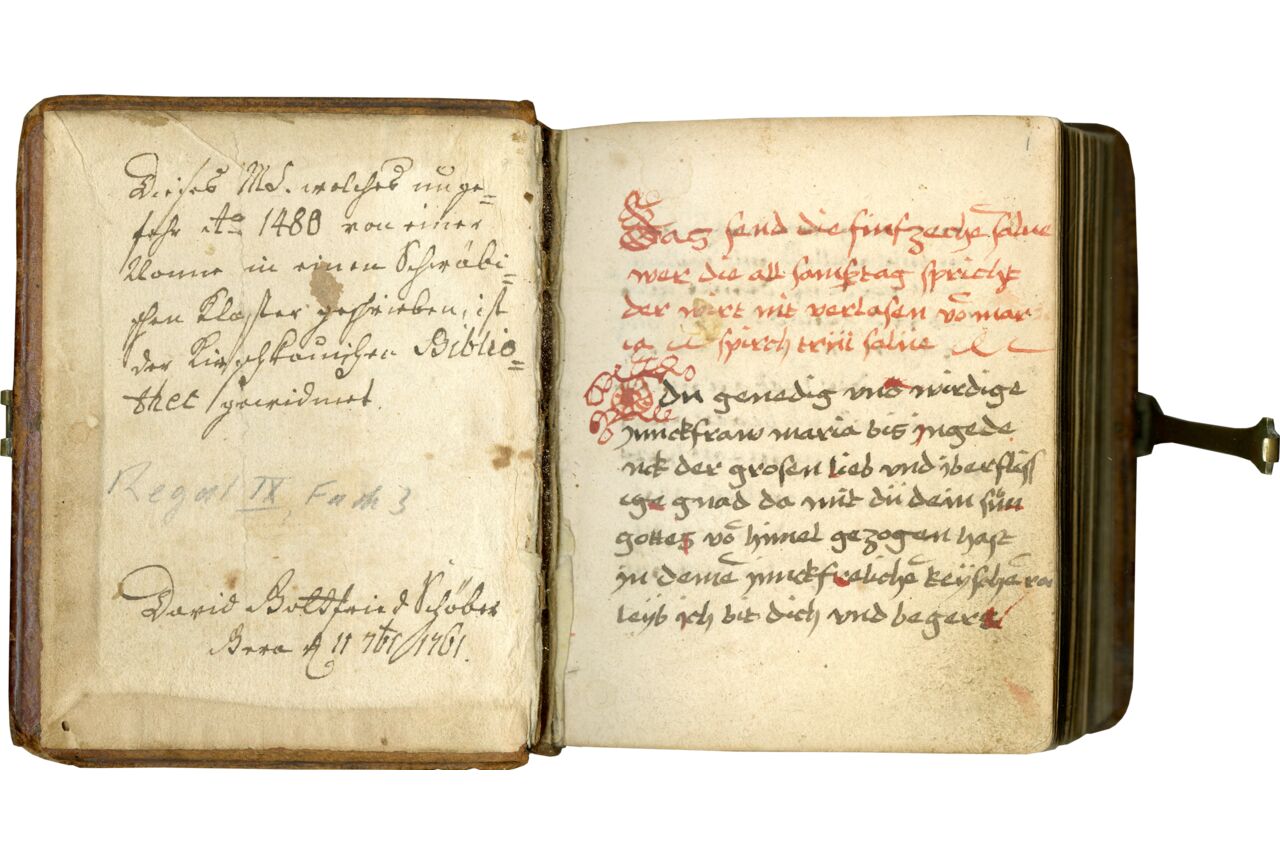 Dieses MS. welches unge=
fehr Ao 1480 von einer
Nonne in einen Schwäbi=
schen Kloster geschrieben, ist
der Kirschkauischen Biblio=
thec gewidmet.
Regal IX Fach 3
David Gottfried Schöber
Gera d 11 7br 1761.
1
Das send die finfzechē salue
wer die all samstag spricht
der wirt nit verlasen vō mar
ia spirch triii salue
O du genedig vnd wirdige
junckfraw maria bis jngede
nck der grosen lieb vnd iberfliss
ige gnad da mit dü dein sün
gottes vō himel gezogen hast
jn deinē junckfrelichē keÿschē
leÿb ich bit dich vnd beger